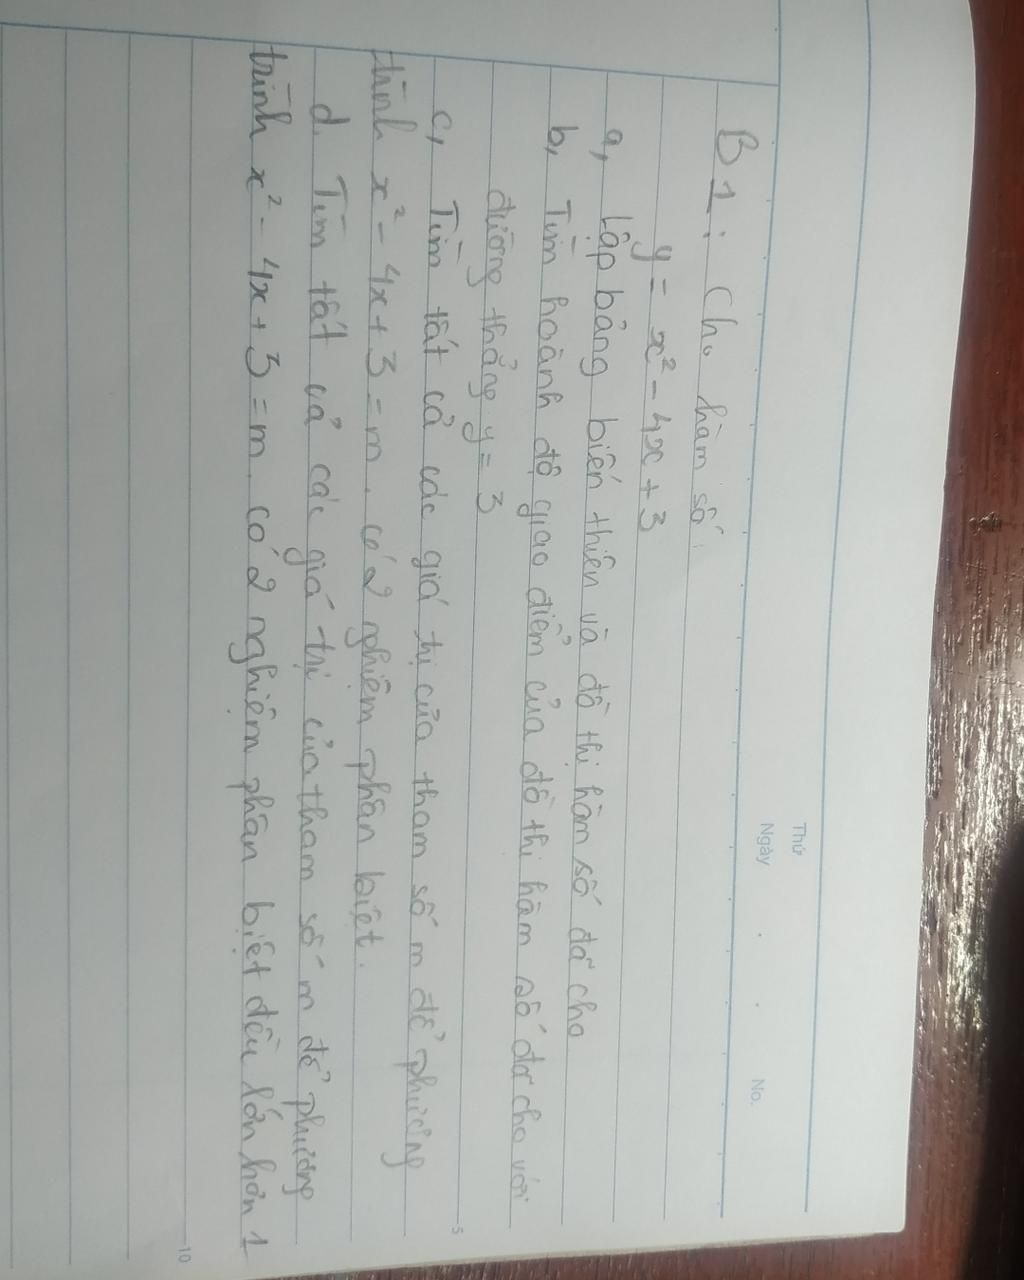 Thứ
Ngày
No.
B1: Cho hàm số:
y = x² - 4x + 3
a, Lập bảng biến thiên và đồ thị hàm số đã cho
b, Tìm hoành độ giao điểm của đồ thị hàm số đã cho với
đường thẳng y = 3
c, Tìm tất cả các giá trị của tham số m để phương
trình x² - 4x + 3 = m. có 2 nghiệm phân biệt.
d. Tìm tất cả các giá trị của tham số m để phương
trình x² - 4x + 3 = m. có 2 nghiệm phân biệt đều lớn hơn 1
5
10